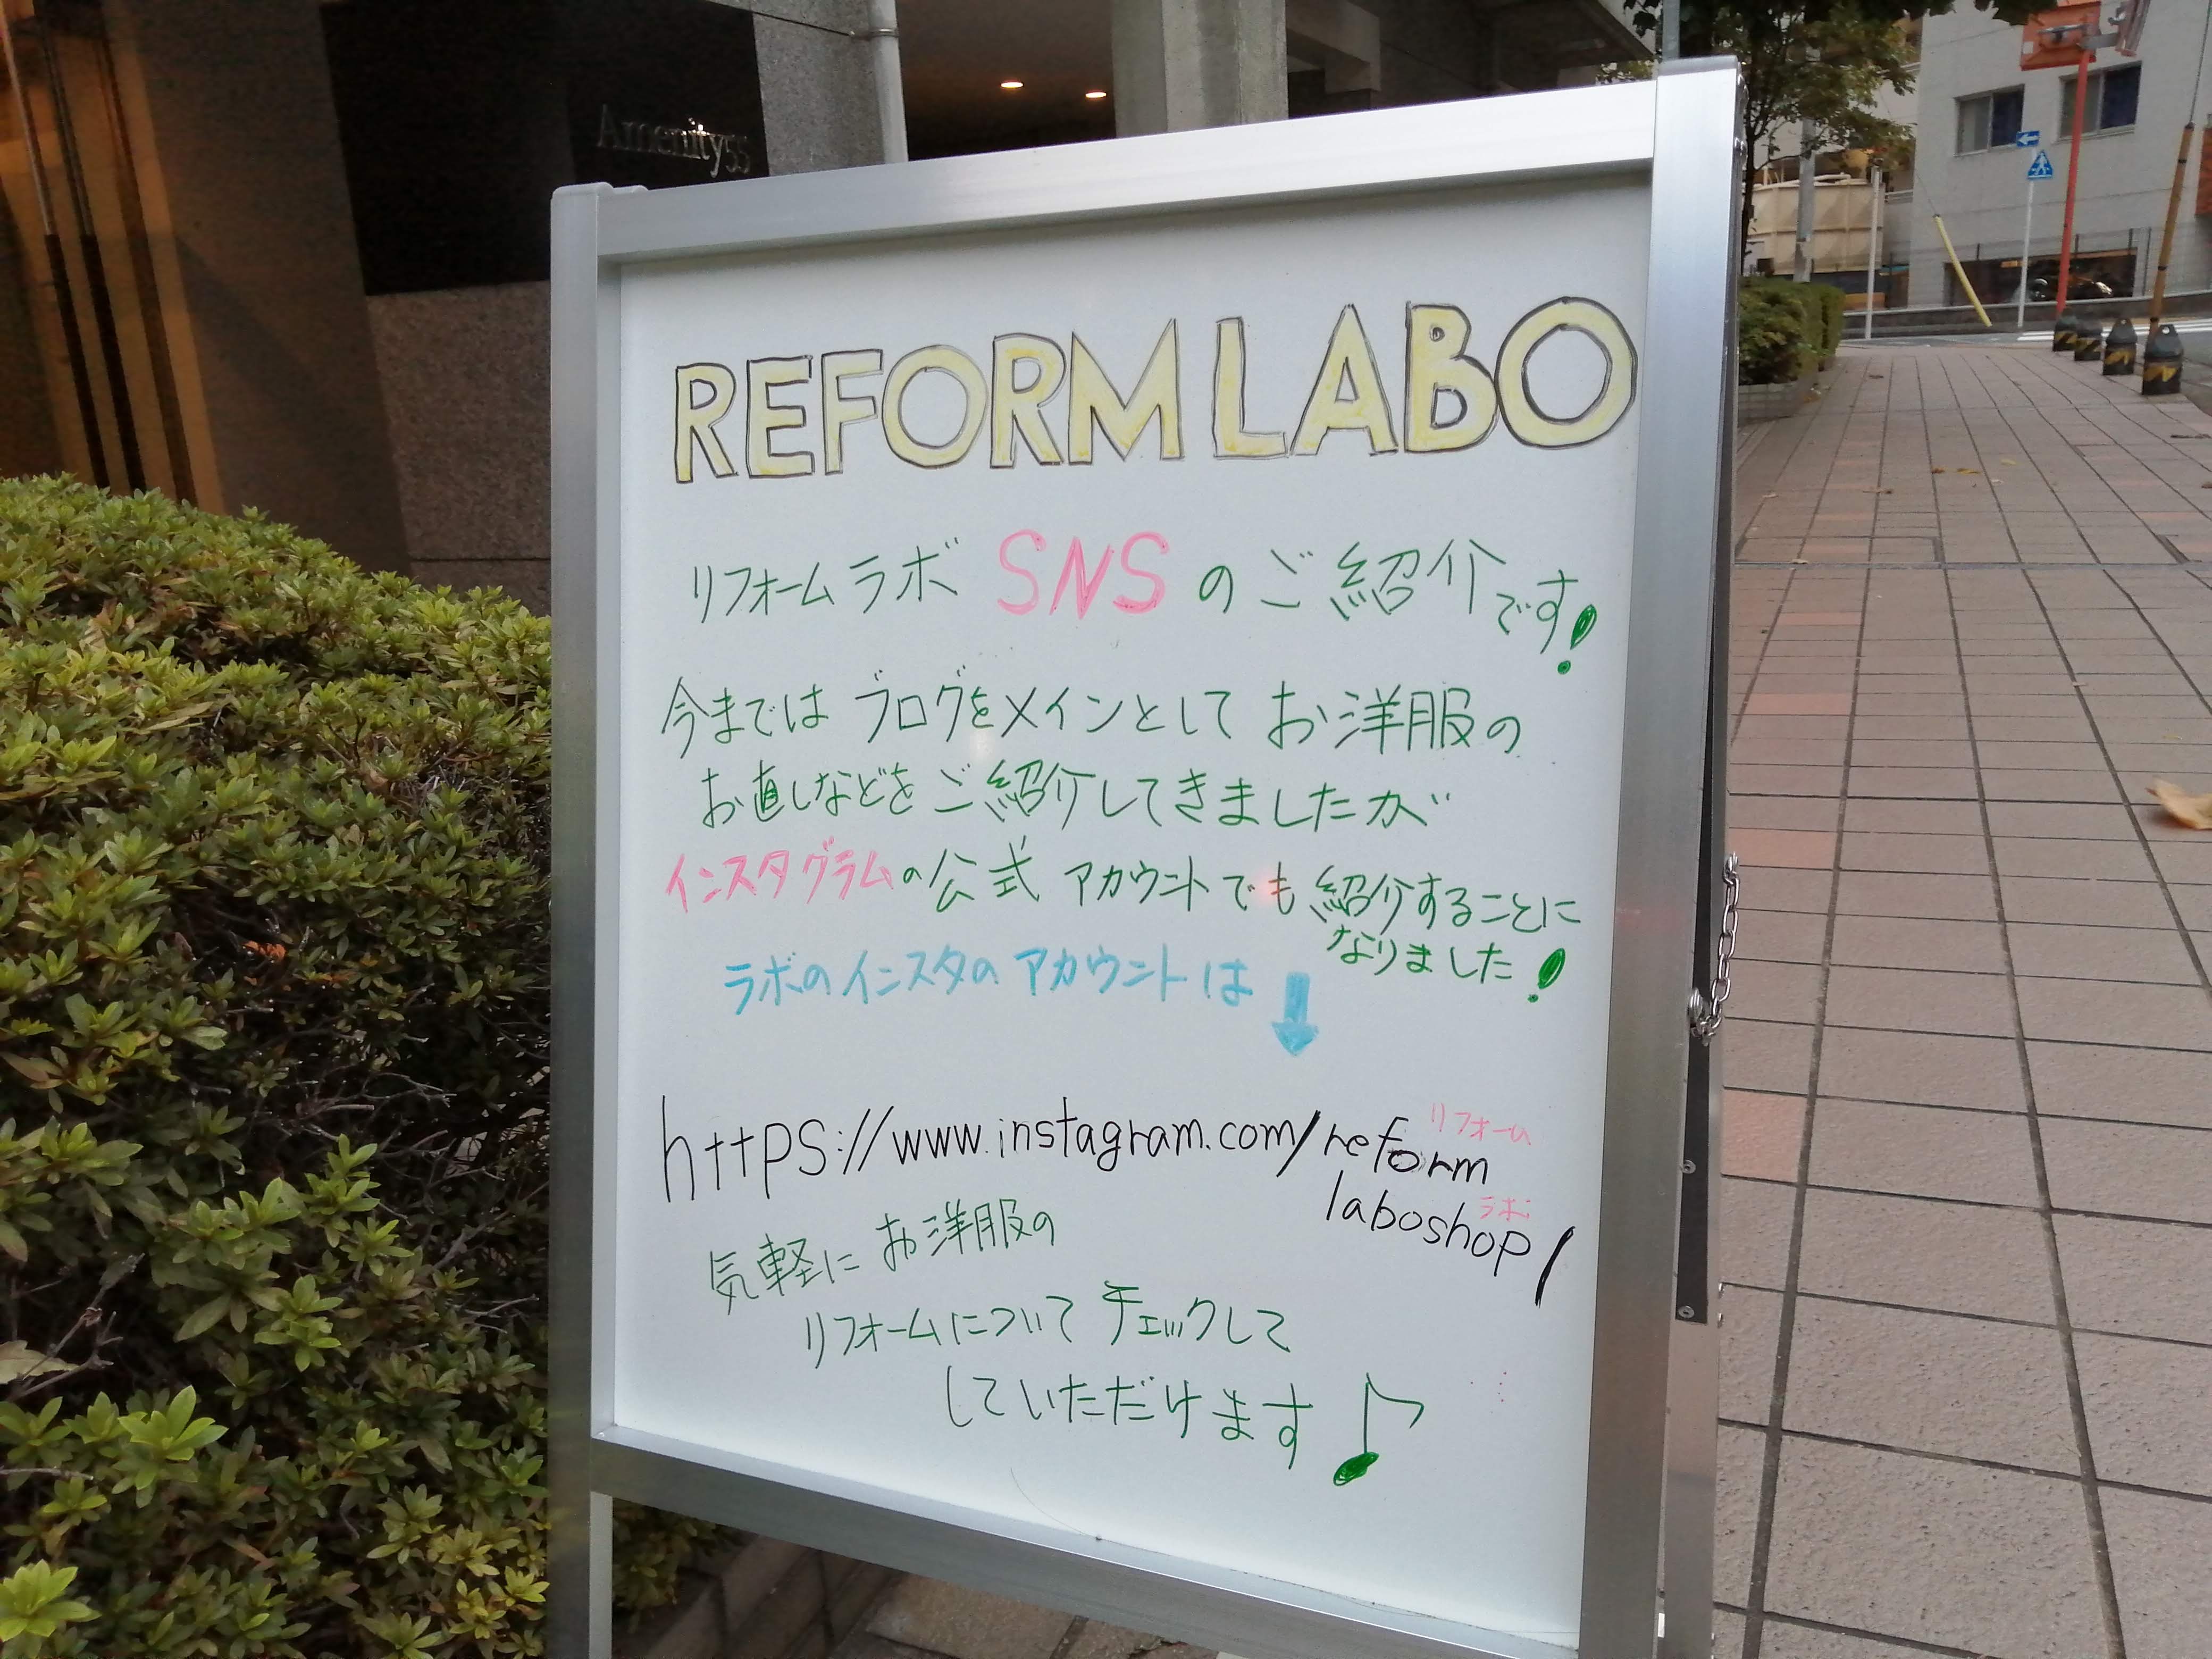 Amenity55
REFORM LABO
リフォームラボ SNS のご紹介です!
今までは ブログをメインとして お洋服の
お直しなどを ご紹介してきましたが
インスタグラムの公式 アカウントでも 紹介することに
なりました!
ラボのインスタの アカウントは
リフォーム
https://www.instagram.com/reform
ラボ
laboshop/
気軽に お洋服の
リフォームについて チェックして
していただけます♪